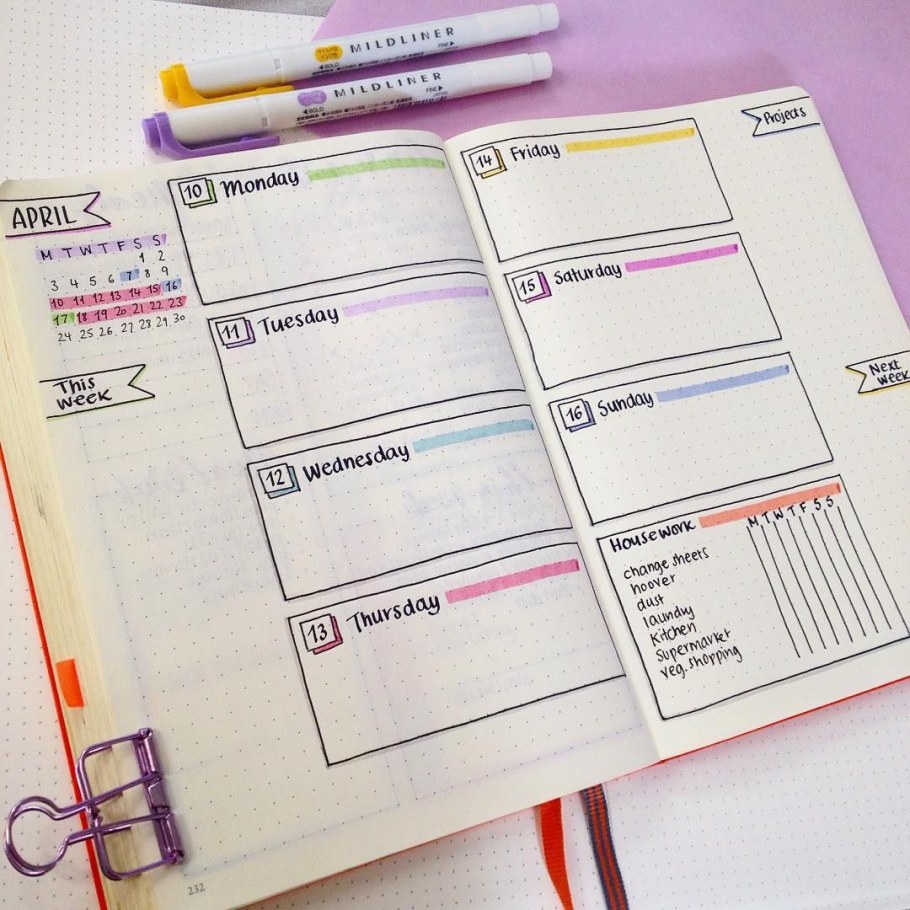 MILDLINER
FINE
BOLD
MILDLINER
FINE
BOLD
ZEBRA
APRIL
M T W T F S S
1 2
3 4 5 6 7 8 9
10 11 12 13 14 15 16
17 18 19 20 21 22 23
24 25 26 27 28 29 30
This
Week
10 Monday
11 Tuesday
12 Wednesday
13 Thursday
232
14 Friday
15 Saturday
16 Sunday
Housework
M T W T F S S
change sheets
hoover
dust
laundry
Kitchen
Supermarket
veg. shopping
Projects
Next
Week